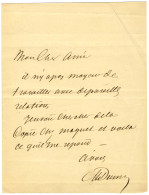 Mon Cher Ami
il n'y a pas moyen de
travailler avec de pareilles
relations
J'envoie chercher la
Copie chez Maquet et voilà
ce qu'il me répond —
à vous
ADumas